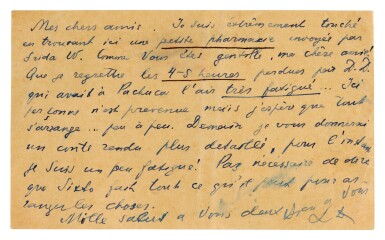 Mes chers amis. Je suis extrêmement touché
en trouvant ici une petite pharmacie envoyée par
Suda W. Comme vous êtes gentille, ma chère amie!
Que je regrette les 4-5 heures perdues par D.D.
qui avait à Pachuca l'air très fatigué... Ici
personne n'est prevenue mais j'espère que tout
s'arrange... peu à peu. Demain je vous donnerai
un conte rendu plus detaillé, pour l'inst
je suis un peu fatigué! Pas nécessaire de dire
que Sixto fait tout ce qu'il peut pour ar-
ranger les choses.
Mille saluts a vous deux